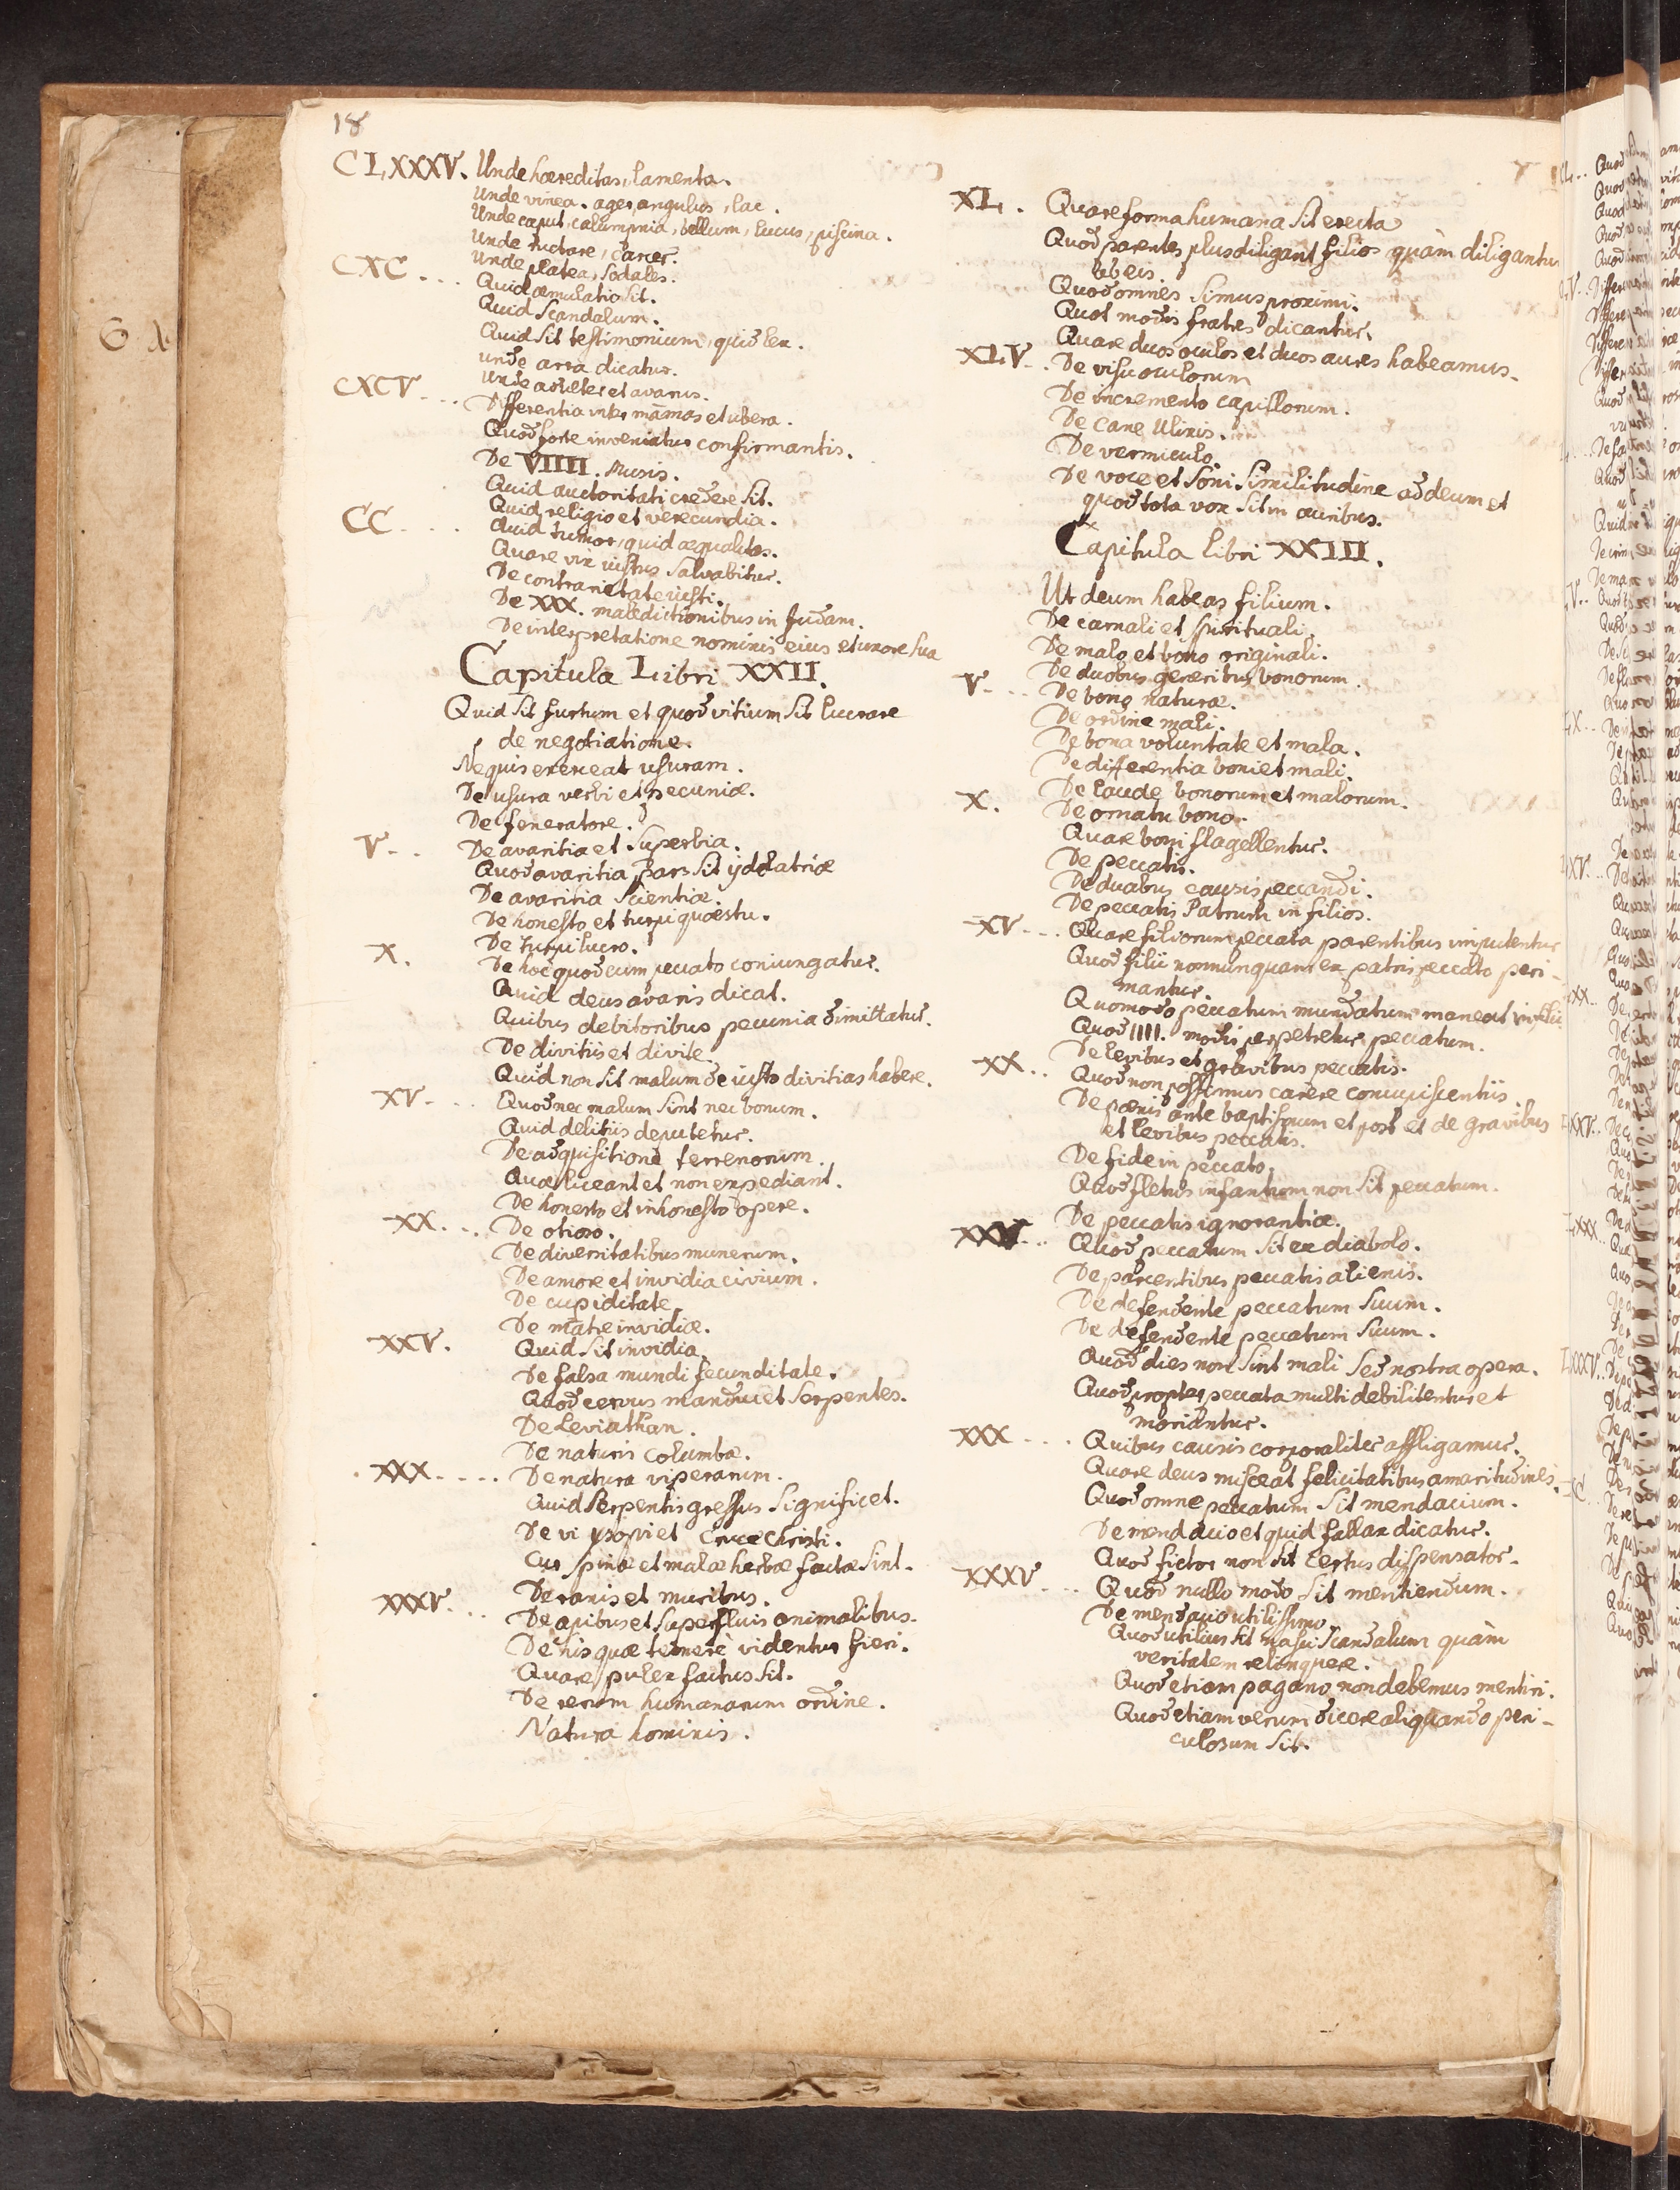 18
CLXXXV. Unde hoereditas, lamenta.
Unde vinea. ager, angulus, lac.
Unde caput, calumpnia, bellum, lucus, piscina.
Unde ructare, carcer.
CXC . . . Unde platea, sodales.
Quid æmulatio sit.
Quid scandalum.
Quid sit testimonium, quid lex.
unde arra dicatur.
CXCV . . . Unde adulter et avarus.
Differentia inter mammas et ubera.
Quod forte inveniatur confirmantis.
De VIIII. Musis.
Quid auctoritati credere sit.
CC . . . . Quid religio et verecundia.
Quid tumor, quid æqualitas.
Quare vix iustus salvabitur.
De contrarietate iusti.
De XXX. maledictionibus in Judam.
De interpretatione nominis eius et uxore sua
Capitula Libri XXII.
Quid sit furtum et quod vitium sit lucrare
de negotiatione.
Ne quis exerceat usuram.
De usura verbi et pecuniæ.
De feneratore.
V . . De avaritia et superbia.
Quod avaritia pars sit ydolatriæ
De avaritia scientiæ.
De honesto et turpi quæstu.
De turpi lucro.
X. De hoc quod cum peccato coniungatur.
Quid deus avaris dicat.
Quibus debitoribus pecunia dimittatur.
De divitiis et divite.
Quid non sit malum de iusto divitias habere.
XV . . . Quod nec malum sint nec bonum.
Quid delitiis deputetur.
De adquisitione terrenorum.
Quæ liceant et non expediant.
De honesto et inhonesto opere.
XX . . . De otioso.
De diversitatibus munerum.
De amore et invidia civium.
De cupiditate.
De matre invidiæ.
XXV. Quid sit invidia.
De falsa mundi fecunditate.
Quod cervus manducet serpentes.
De Leviathan.
De naturis columbæ.
XXX . . . . De natura viperarum.
Quid serpentis gressus significet.
De vi ysopi et cruce Christi.
Cur spinæ et malæ herbæ factæ sint.
De ranis et muribus.
XXXV . . . De apibus et superfluis animalibus.
De his quæ temere videntur fieri.
Quare pulex factus sit.
De rerum humanarum ordine.
Natura hominis.
XL. Quare forma humana sit erecta
Quod parentes plus diligant filios quàm diligantur
ab eis.
Quod omnes simus proximi.
Quot modis fratres dicantur.
Quare duos oculos et duos aures habeamus.
XLV . . De visu oculorum
De incremento capillorum.
De cane Ulixis.
De vermiculo.
De voce et soni similitudine ad deum et
quod tota vox sit in auribus.
Capitula libri XXIII.
Ut deum habeas filium.
De carnali et spirituali.
De malo et bono originali.
De duobus generibus bonorum.
V . . . De bono naturæ.
De ordine mali.
De bona voluntate et mala.
De differentia boni et mali.
De laude bonorum et malorum.
X. De ornatu bono.
Quare boni flagellentur.
De peccatis.
De duabus causis peccandi.
De peccatis Patrum in filios.
XV . . . Quare filiorum peccata parentibus imputentur
Quod filii nonnunquam ex patris peccato peri-
mantur.
Quomodo peccatum mundatum maneat in filii
Quod IIII. modis perpetretur peccatum.
De levibus et gravibus peccatis.
XX . . Quod non possimus carere concupiscentiis.
De pœnis ante baptismum et post et de gravibus
et levibus peccatis.
De fide in peccato.
Quod fletus infantium non sit peccatum.
De peccatis ignorantiæ.
XXV . . . Quod peccatum sit ex diabolo.
De parcentibus peccatis alienis.
De defendente peccatum suum.
De defendente peccatum suum.
Quod dies non sint mali sed nostra opera.
Quod propter peccata multi debilitentur et
moriantur.
XXX . . . . Quibus causis corporaliter affligamur.
Quare deus misceat felicitatibus amaritudines.
Quod omne peccatum sit mendacium.
De mendacio et quid fallax dicatur.
Quod fictor non sit certus dispensator.
XXXV . . . Quod nullo modo sit mentiendum.
De mendacio utilissimo.
Quod utilius sit nasci scandalum quàm
veritatem relinquere.
Quod etiam pagano non debemus mentiri.
Quod etiam verum dicere aliquando peri-
culosum sit.